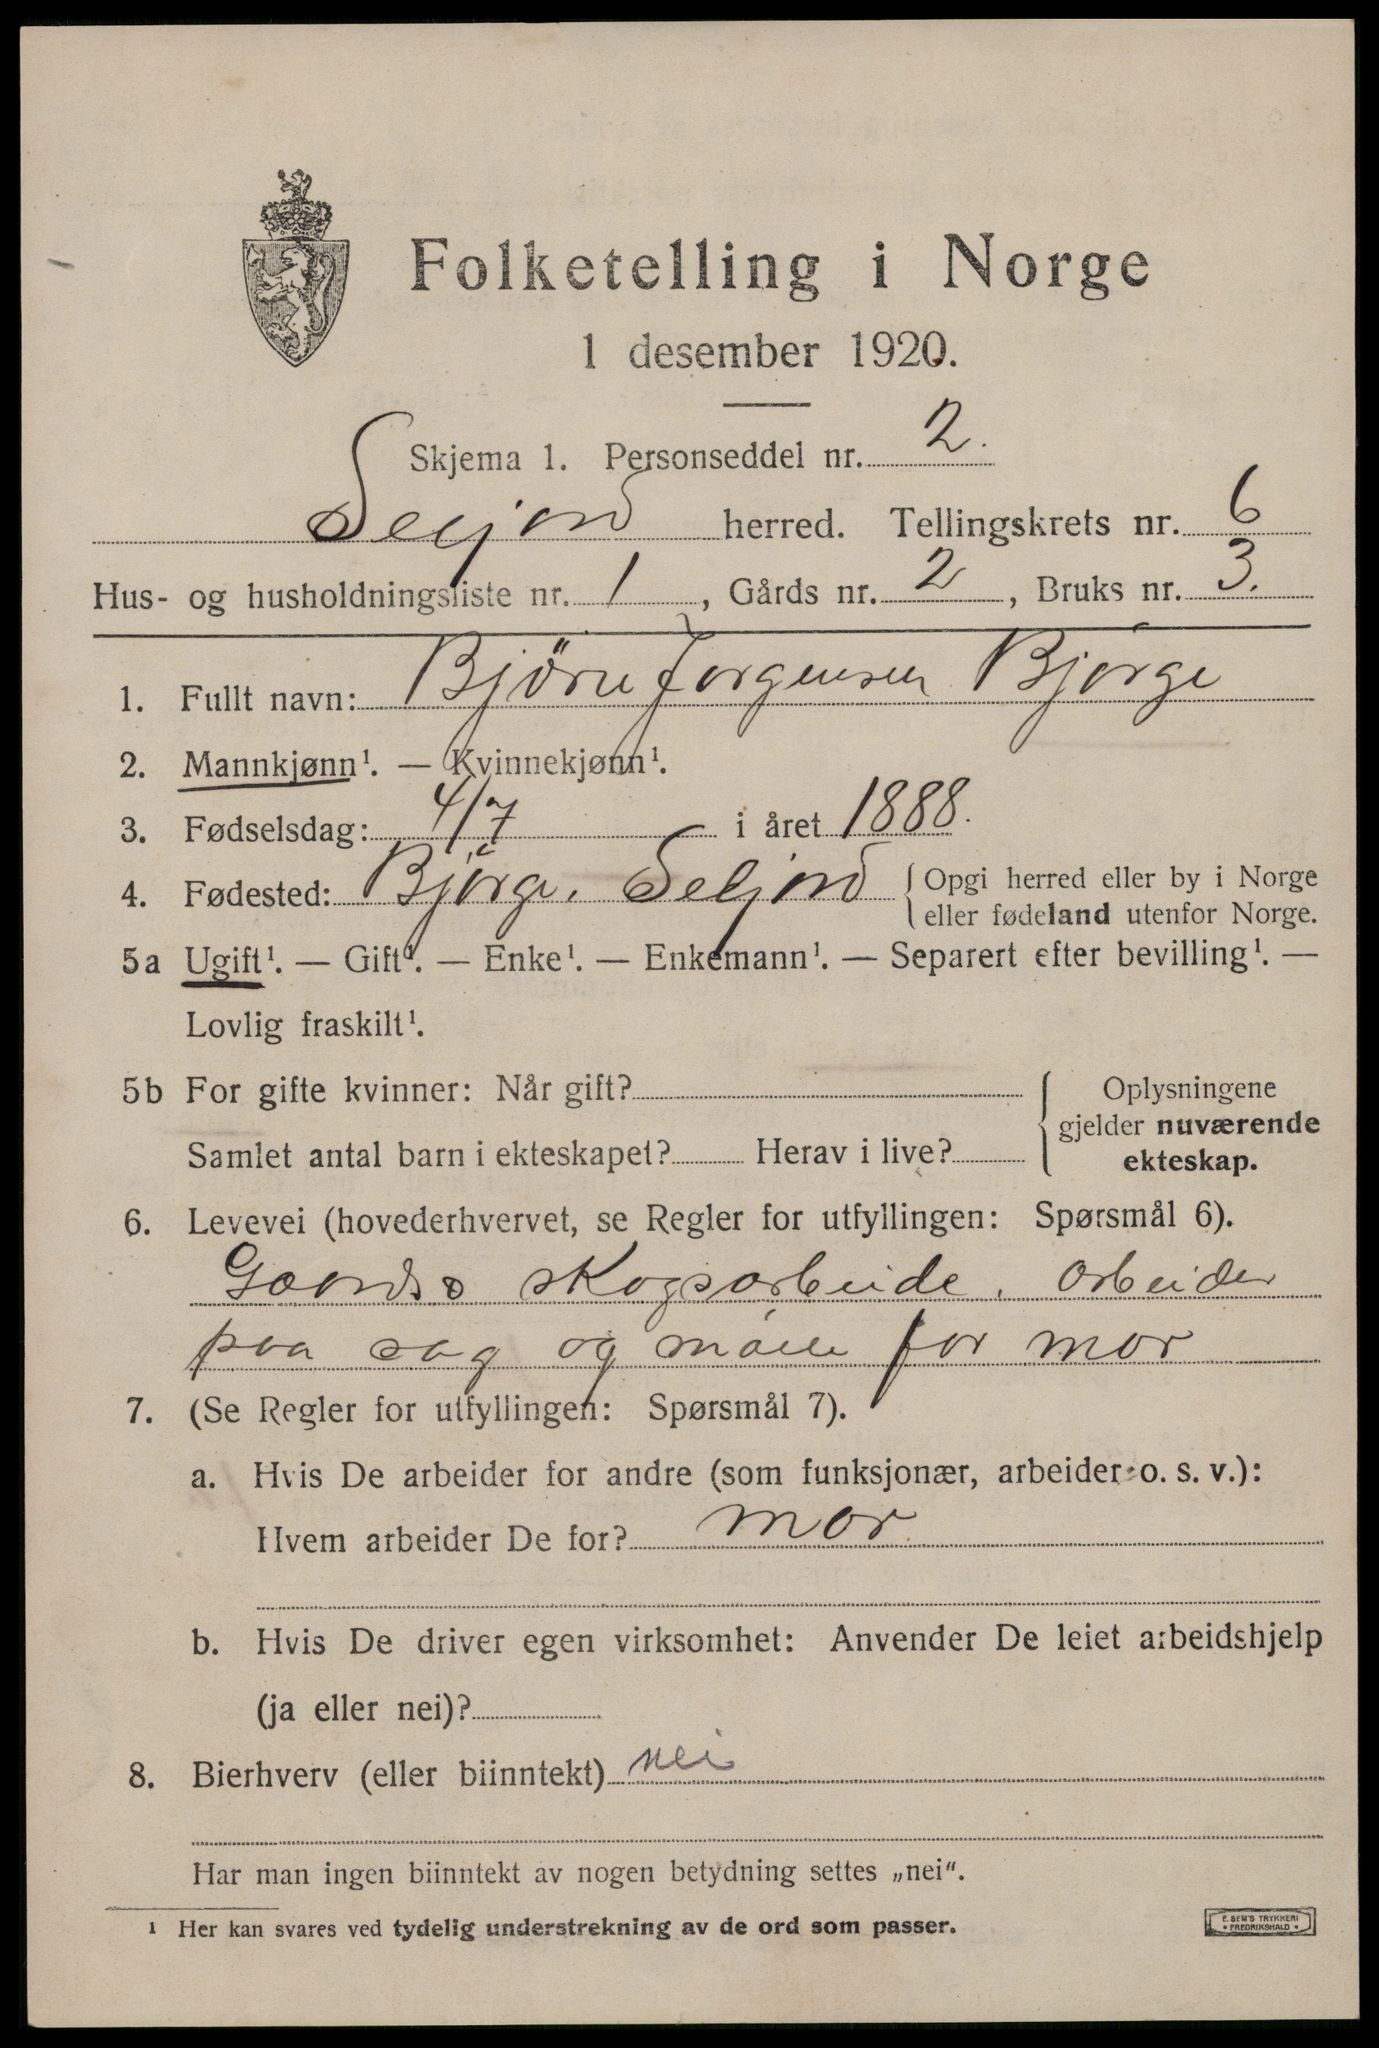 Folketelling i Norge
1 desember 1920.
Skjema 1. Personseddel nr. 2.
Seljord herred. Tellingskrets nr. 6
Hus- og husholdningsliste nr. 1, Gårds nr. 2, Bruks nr. 3.
1. Fullt navn: Bjørn Jørgensen Bjørge
2. Mannkjønn¹. — Kvinnekjønn¹.
3. Fødselsdag: 4/7 i året 1888.
4. Fødested: Bjørge, Seljord { Opgi herred eller by i Norge
eller fødeland utenfor Norge.
5a Ugift¹. — Gift¹. — Enke¹. — Enkemann¹. — Separert efter bevilling¹. —
Lovlig fraskilt¹.
5b For gifte kvinner: Når gift? { Oplysningene
gjelder nuværende
Samlet antal barn i ekteskapet? Herav i live?
ekteskap.
6. Levevei (hovederhvervet, se Regler for utfyllingen: Spørsmål 6).
Gaards & skogsarbeide. Arbeider
paa sag og mølle for mor
7. (Se Regler for utfyllingen: Spørsmål 7).
a. Hvis De arbeider for andre (som funksjonær, arbeider o. s. v.):
Hvem arbeider De for? mor
b. Hvis De driver egen virksomhet: Anvender De leiet arbeidshjelp
(ja eller nei)?
8. Bierhverv (eller biinntekt) nei
Har man ingen biinntekt av nogen betydning settes „nei“.
¹ Her kan svares ved tydelig understrekning av de ord som passer.
E. SEM'S TRYKKERI
• FREDRIKSHALD •